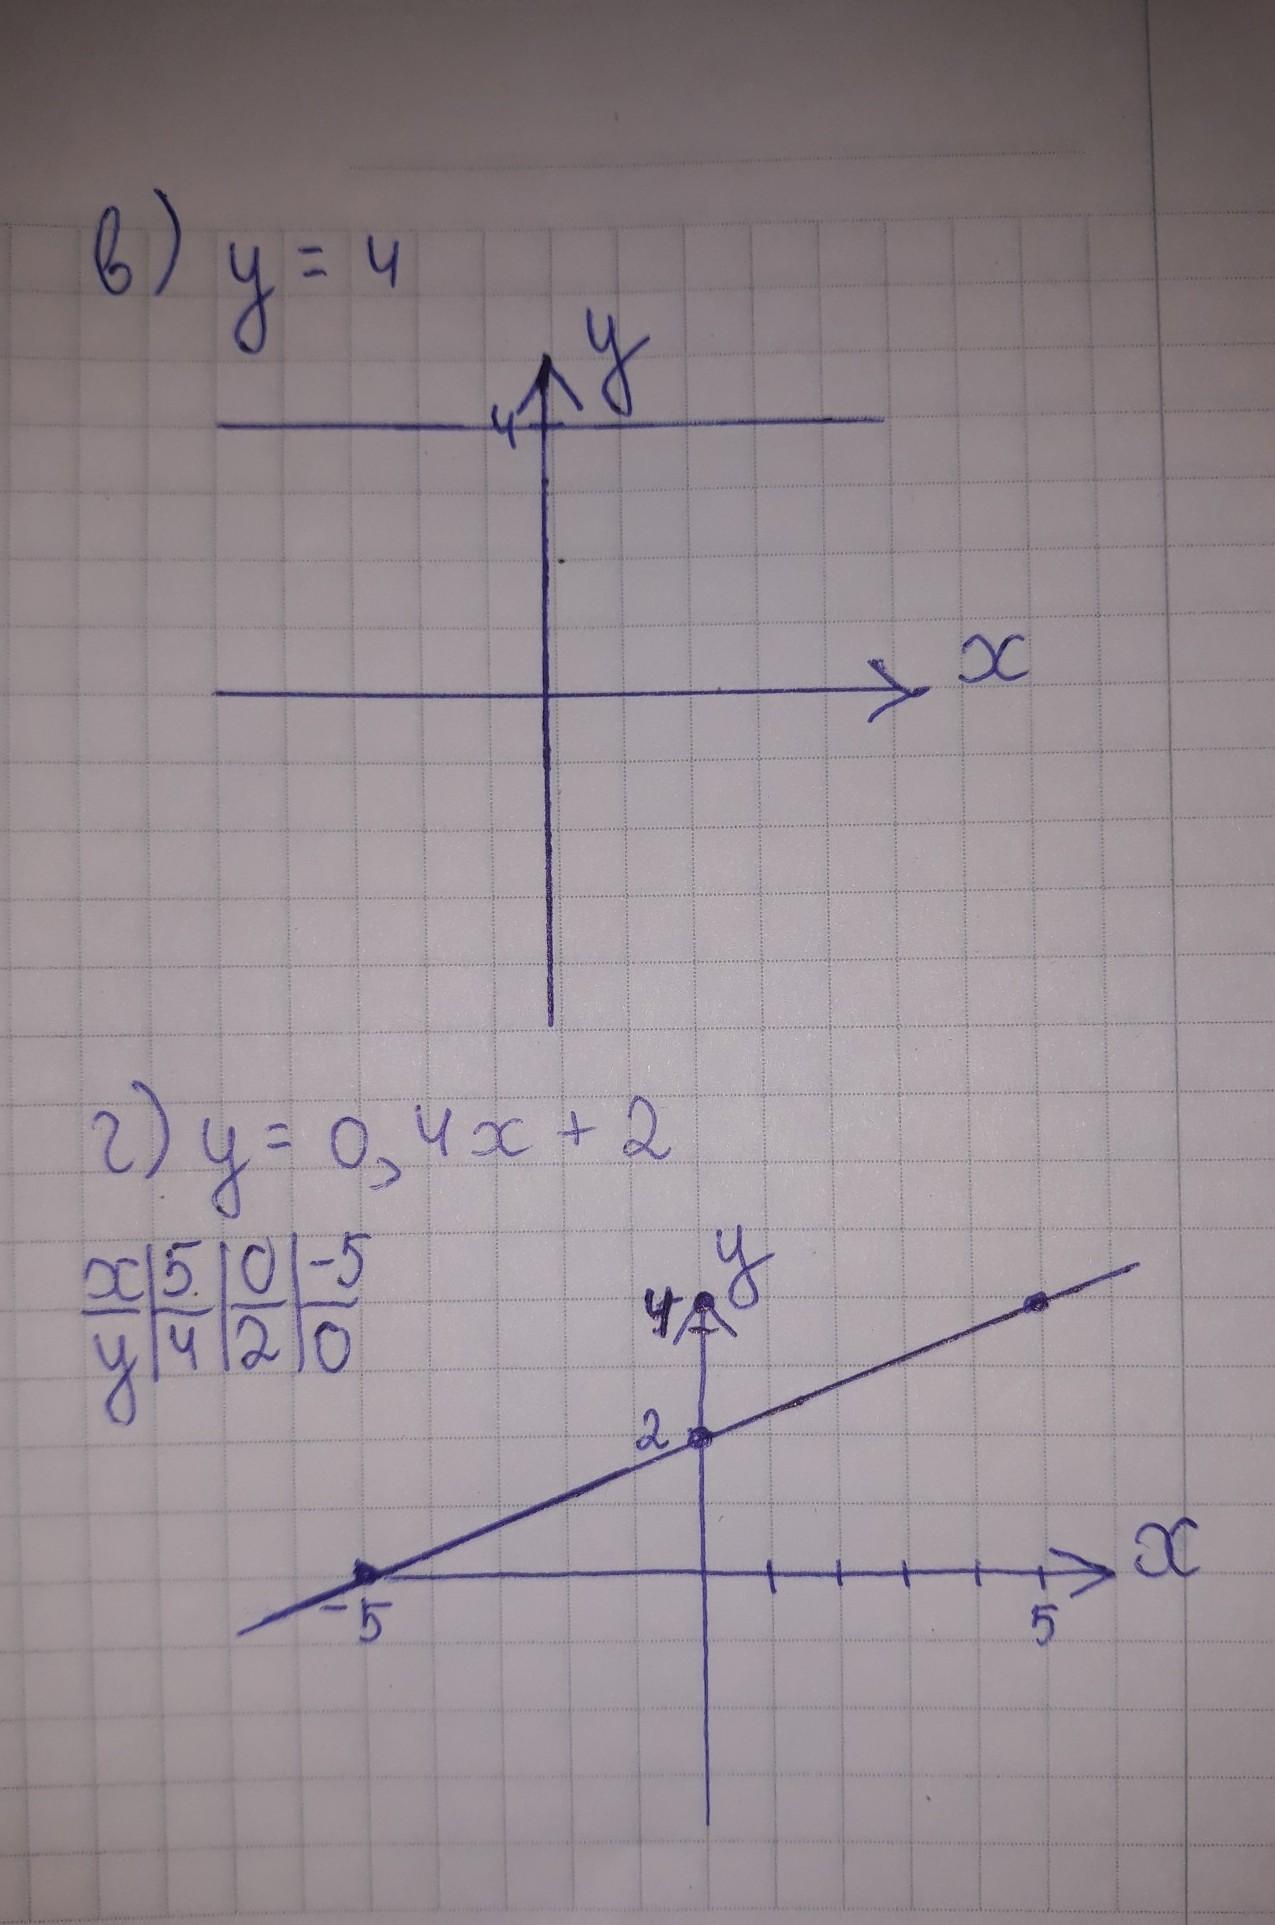 в) y = 4
y
4
x
г) y = 0,4x + 2
x|5|0|-5
y|4|2|0
y
4
2
x
-5
5